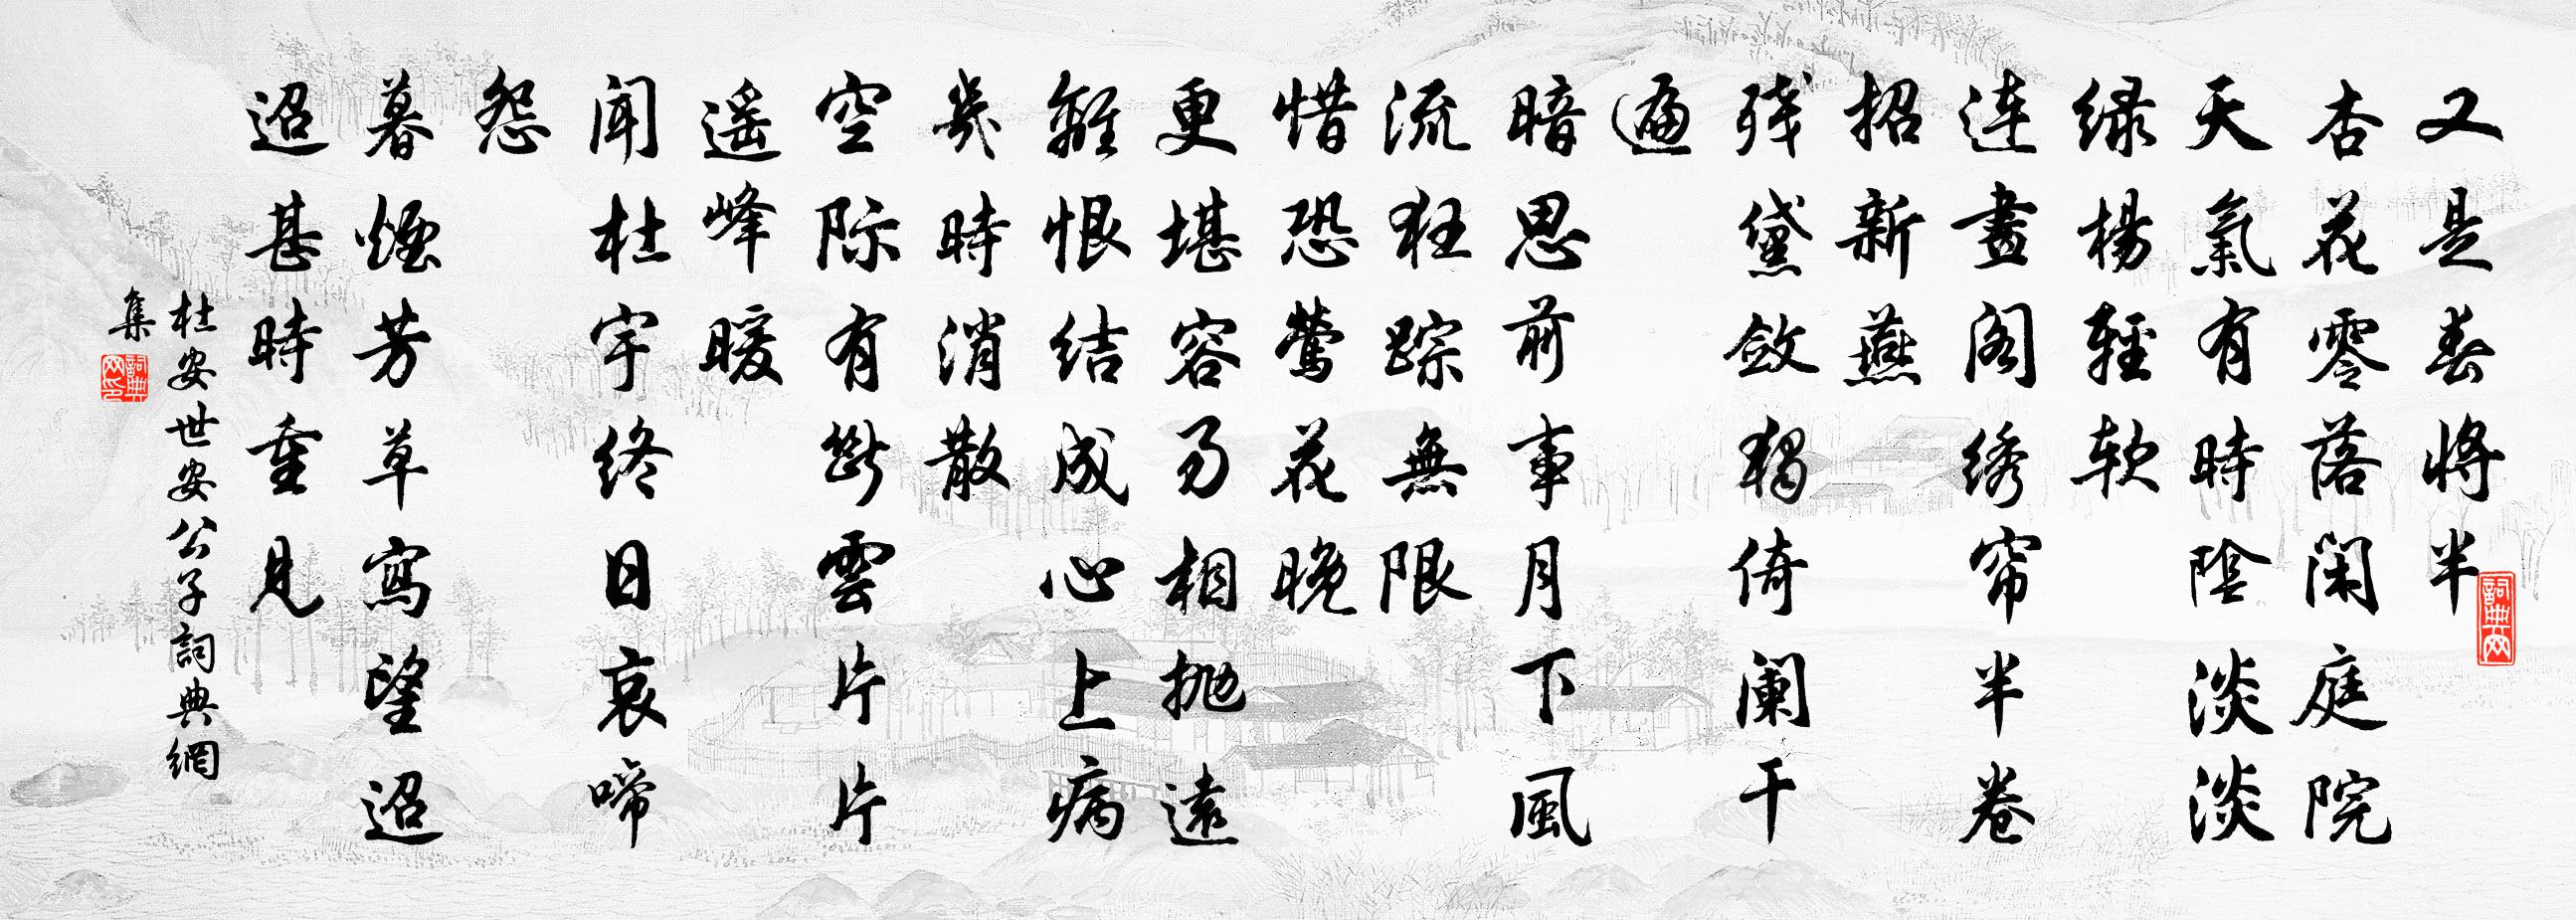 又是春将半
杏花零落闲庭院
天氣有時陰淡淡
绿楊輕软
连畫阁绣帘半卷
招新燕
残黛敛獨倚阑干
遍
暗思前事月下風
流狂踪無限
惜恐莺花晚
更堪容易相抛遠
離恨结成心上病
幾時消散
空际有斷雲片片
遥峰暖
闻杜宇终日哀啼
怨
暮煙芳草寫望迢
迢甚時重見
杜安世安公子詞典網
集
詞典网
詞典网印